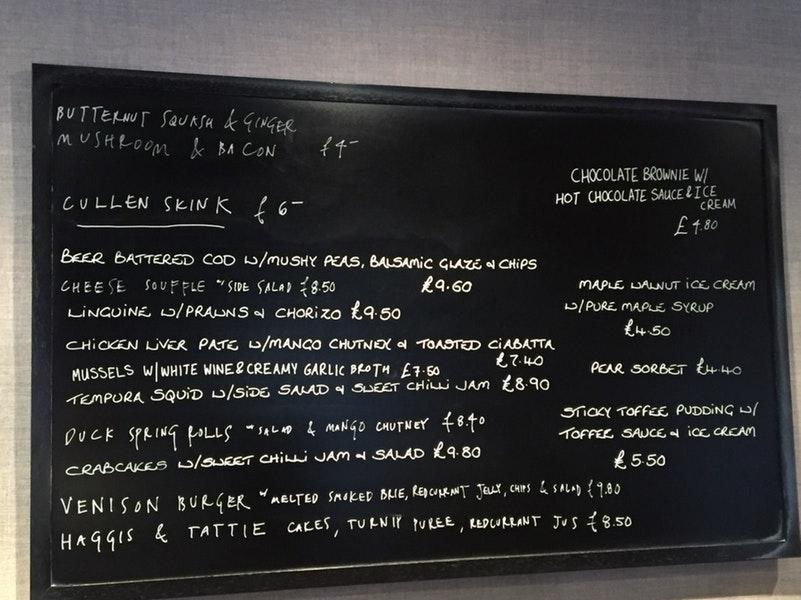 BUTTERNUT SQUASH & GINGER
MUSHROOM & BACON £4-
CULLEN SKINK £6-
BEER BATTERED COD W/MUSHY PEAS, BALSAMIC GLAZE & CHIPS
£9.60
CHEESE SOUFFLE w/ SIDE SALAD £8.50
LINGUINE W/PRAWNS & CHORIZO £9.50
CHICKEN LIVER PATE W/MANGO CHUTNEY & TOASTED CIABATTA
£7.40
MUSSELS W/WHITE WINE & CREAMY GARLIC BROTH £7.50
TEMPURA SQUID W/SIDE SALAD & SWEET CHILLI JAM £8.90
DUCK SPRING ROLLS w/ SALAD & MANGO CHUTNEY £8.40
CRABCAKES W/SWEET CHILLI JAM & SALAD £9.80
VENISON BURGER w/ MELTED SMOKED BRIE, REDCURRANT JELLY, CHIPS & SALAD £9.80
HAGGIS & TATTIE CAKES, TURNIP PUREE, REDCURRANT JUS £8.50
CHOCOLATE BROWNIE W/
HOT CHOCOLATE SAUCE & ICE
CREAM
£4.80
MAPLE WALNUT ICE CREAM
W/PURE MAPLE SYRUP
£4.50
PEAR SORBET £4.40
STICKY TOFFEE PUDDING W/
TOFFEE SAUCE & ICE CREAM
£5.50